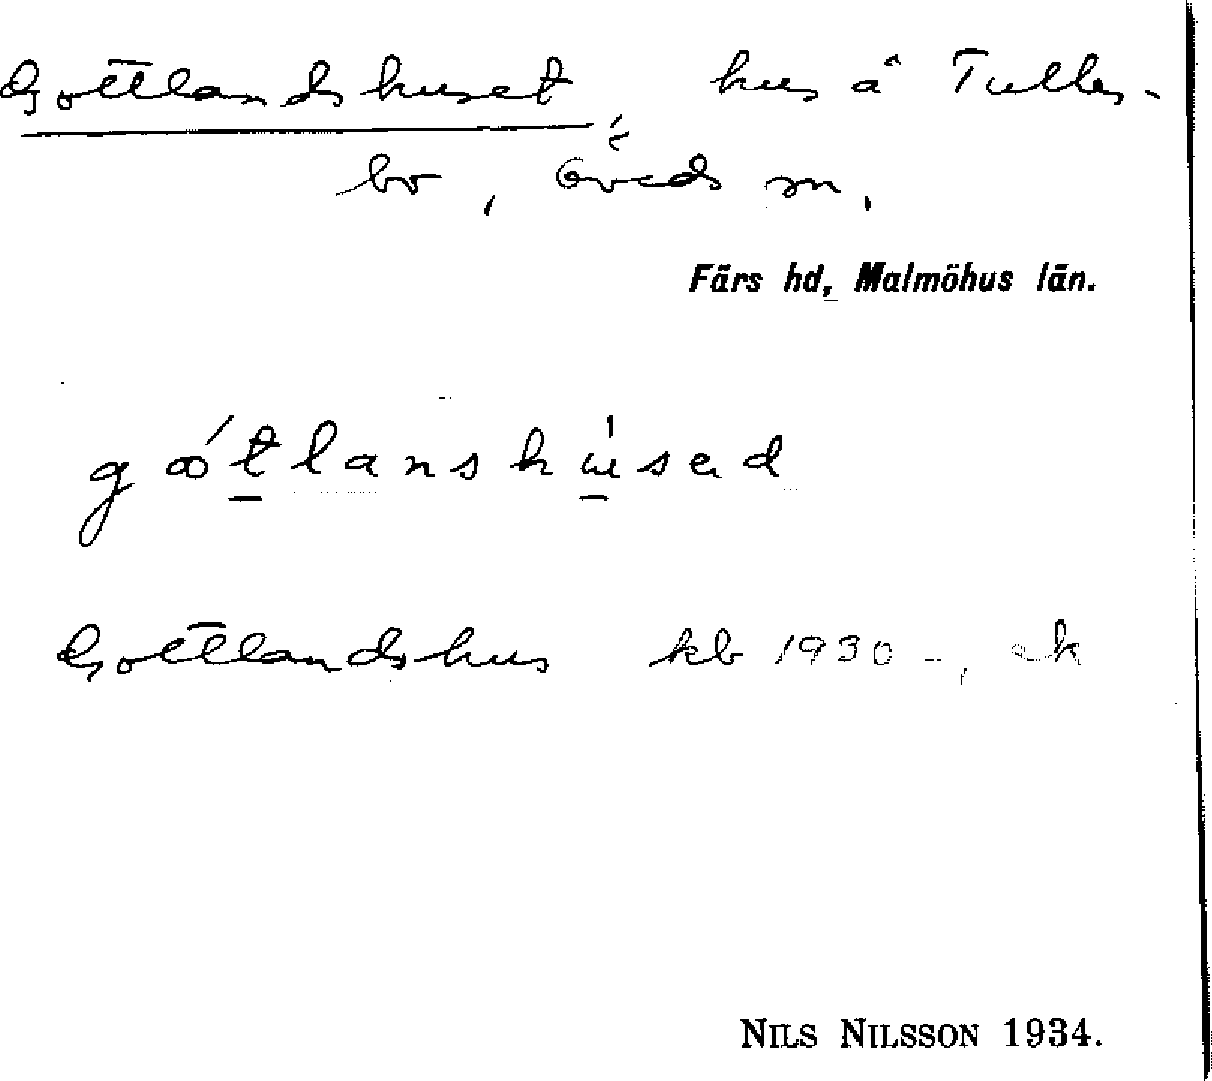 Gottlandshuset, hus å Tulles-
bo, Öveds sn,
Färs hd, Malmöhus län.
gòtlanshùsəd
Gottlandshus kb 1930 –, ek
NILS NILSSON 1934.